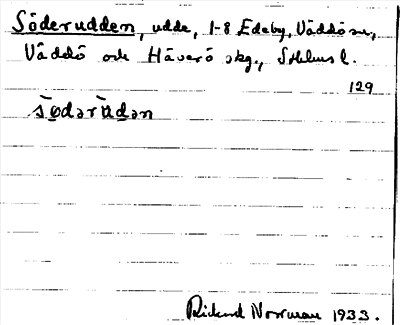 Söderudden, udde, 1-8 Edeby, Väddö sn,
Väddö och Häverö skg., Sthlms l.
129
södərùdən
Rickard Norrman 1933.